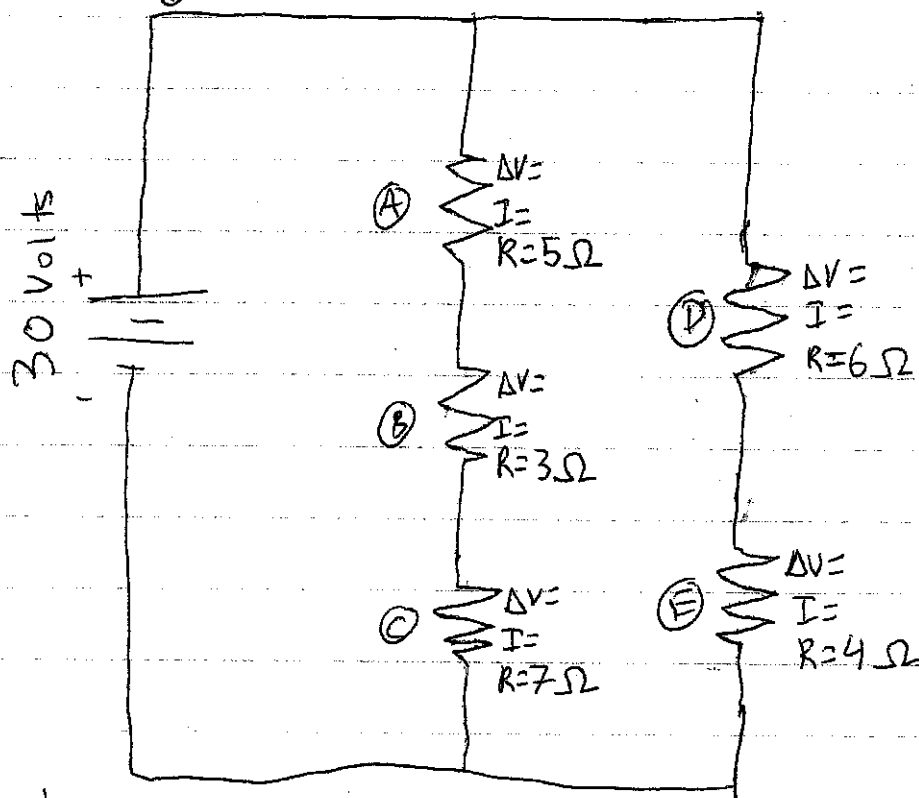 30 Volts
+
-
Ⓐ
ΔV=
I=
R=5Ω
Ⓑ
ΔV=
I=
R=3Ω
Ⓒ
ΔV=
I=
R=7Ω
Ⓓ
ΔV=
I=
R=6Ω
Ⓔ
ΔV=
I=
R=4Ω